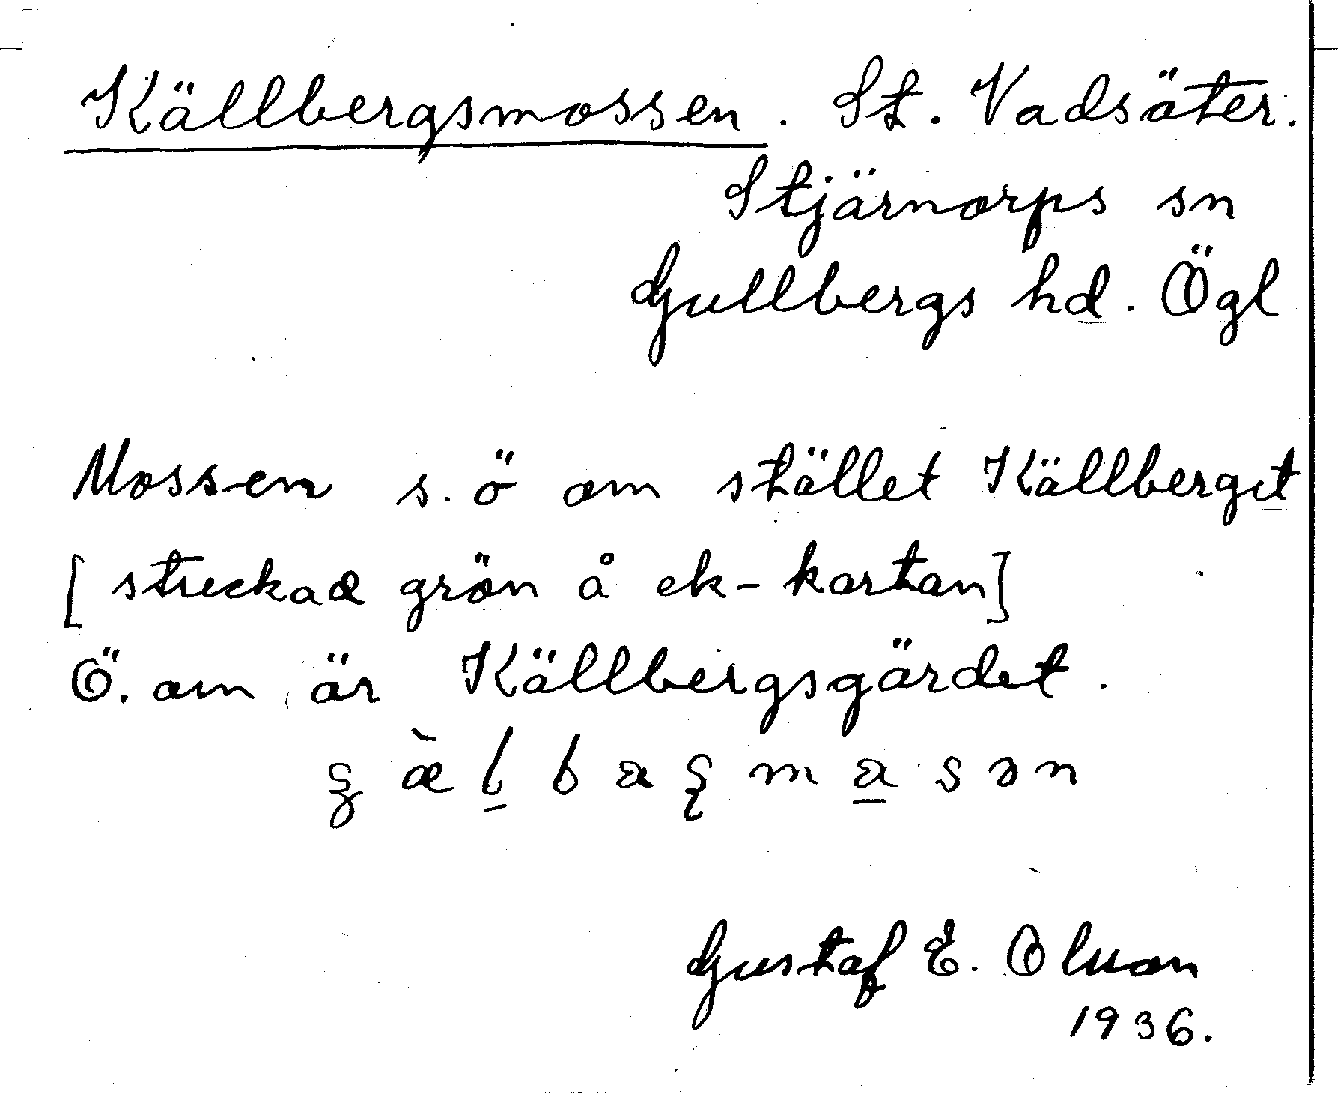 Källbergsmossen. St. Vadsäter.
Stjärnorps sn
Gullbergs hd. Ögl
Mossen s.ö om stället Källberget
[streckad grön å ek-kartan]
Ö. om är Källbergsgärdet.
Gustaf E. Olsson
1936.